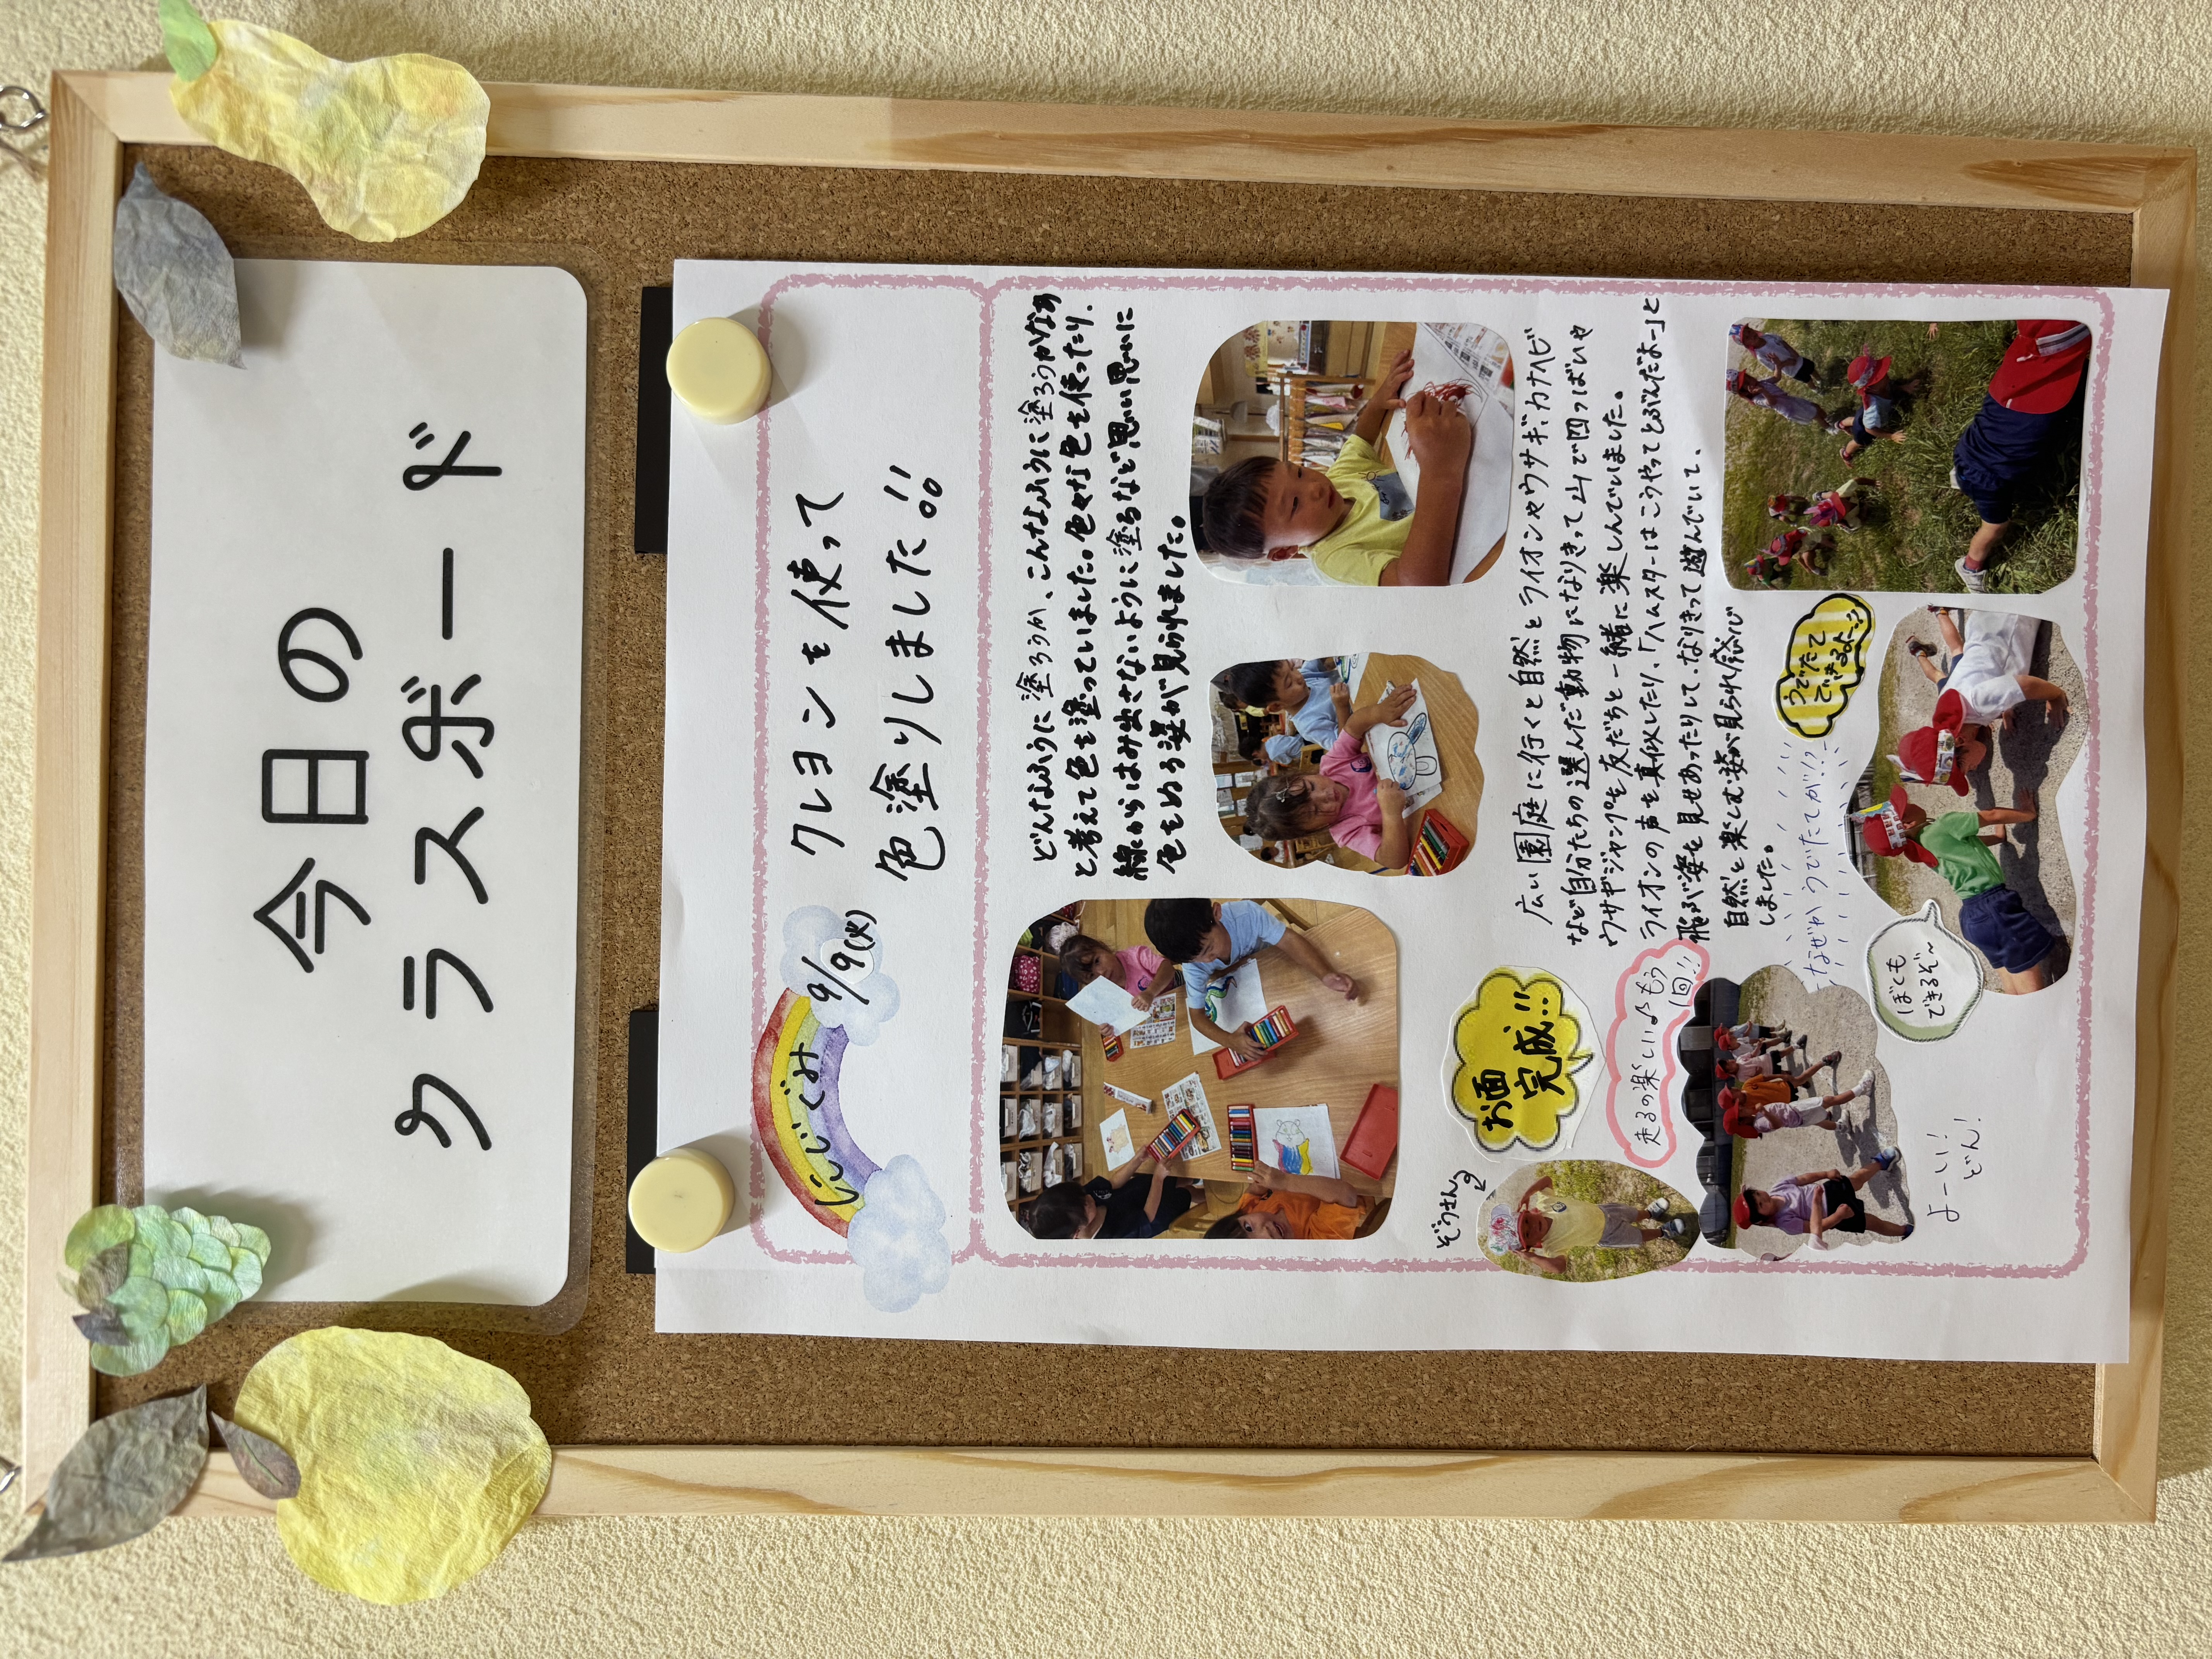 今日の
クラスボード
にじぐみ
9/9(火)
クレヨンを使って
色塗りしました!!
どんなふうに塗ろうか、こんなふうに塗ろうかなあ
と考えて色を塗っていました。色々な色を使ったり、
線からはみ出さないように塗るなど思い思いに
色をぬる姿が見られました。
ぞうさん
お面
完成!!
広い園庭に行くと自然とライオンやウサギ、カナヘビ
など自分たちの選んだ動物になりきって山で四つばいや
ウサギジャンプを友だちと一緒に楽しんでいました。
ライオンの声を真似したり、「ハムスターはこうやってとぶんだよー」と
飛ぶ姿を見せあったりして、なりきって遊んでいて、
自然と楽しむ姿が見られ感心
しました。
走るの楽しい♪もう
1回!!
よーい!
どん!
なぜかうでたてが!?
うでたて
できるよー!!
ぼくも
できるぞ〜